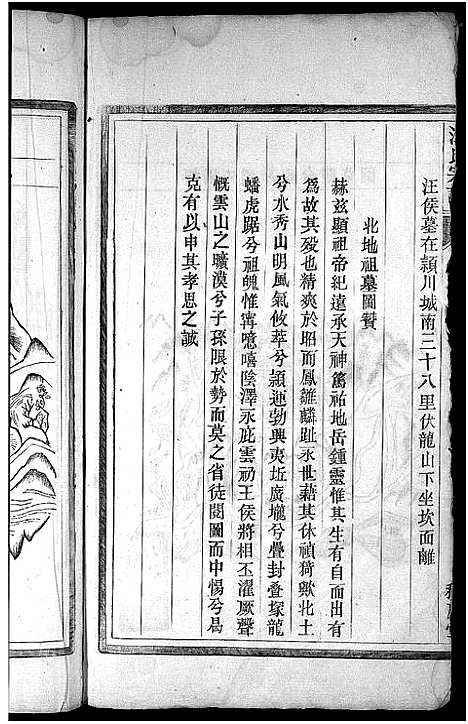 汪侯墓在頴川城南三十八里伏龍山下坐坎面離
北地祖墓圖贊
赫玆顯祖帝紀遠承天神篤祐地岳鍾靈惟其生有自而出有
為故其歿也精爽於昭而鳳雛麟趾永世藉其休禎猗歟北土
兮水秀山明風氣攸萃兮頴運勃興夷坵廣壠兮疊封叠塚龍
蟠虎踞兮祖魄惟寗噫嘻陰澤永庇雲礽王侯將相丕濯厥聲
慨雲山之曠漠兮子孫限於勢而莫之省徒閱圖而中惕兮曷
克有以申其孝思之誠